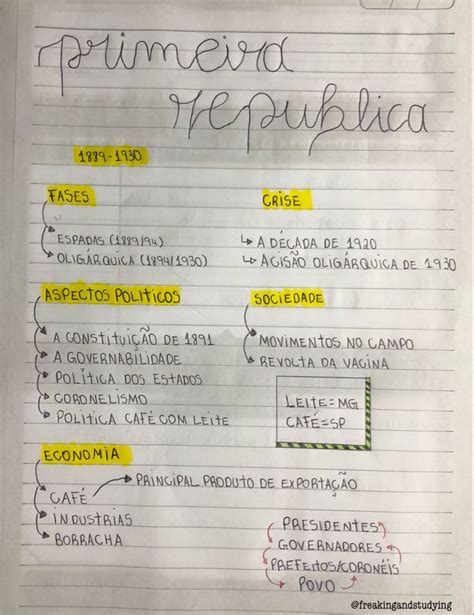 primeira
republica
1889-1930
FASES
ESPADAS (1889/94)
OLIGÁRQUICA (1894/1930)
CRISE
A DÉCADA DE 1920
A CISÃO OLIGÁRQUICA DE 1930
ASPECTOS POLITICOS
A CONSTITUIÇÃO DE 1891
A GOVERNABILIDADE
POLÍTICA DOS ESTADOS
CORONELISMO
POLITICA CAFÉ COM LEITE
SOCIEDADE
MOVIMENTOS NO CAMPO
REVOLTA DA VACINA
LEITE=MG
CAFÉ=SP
ECONOMIA
CAFÉ → PRINCIPAL PRODUTO DE EXPORTAÇÃO
INDUSTRIAS
BORRACHA
PRESIDENTES
GOVERNADORES
PREFEITOS/CORONÉIS
POVO
@freakingandstudying